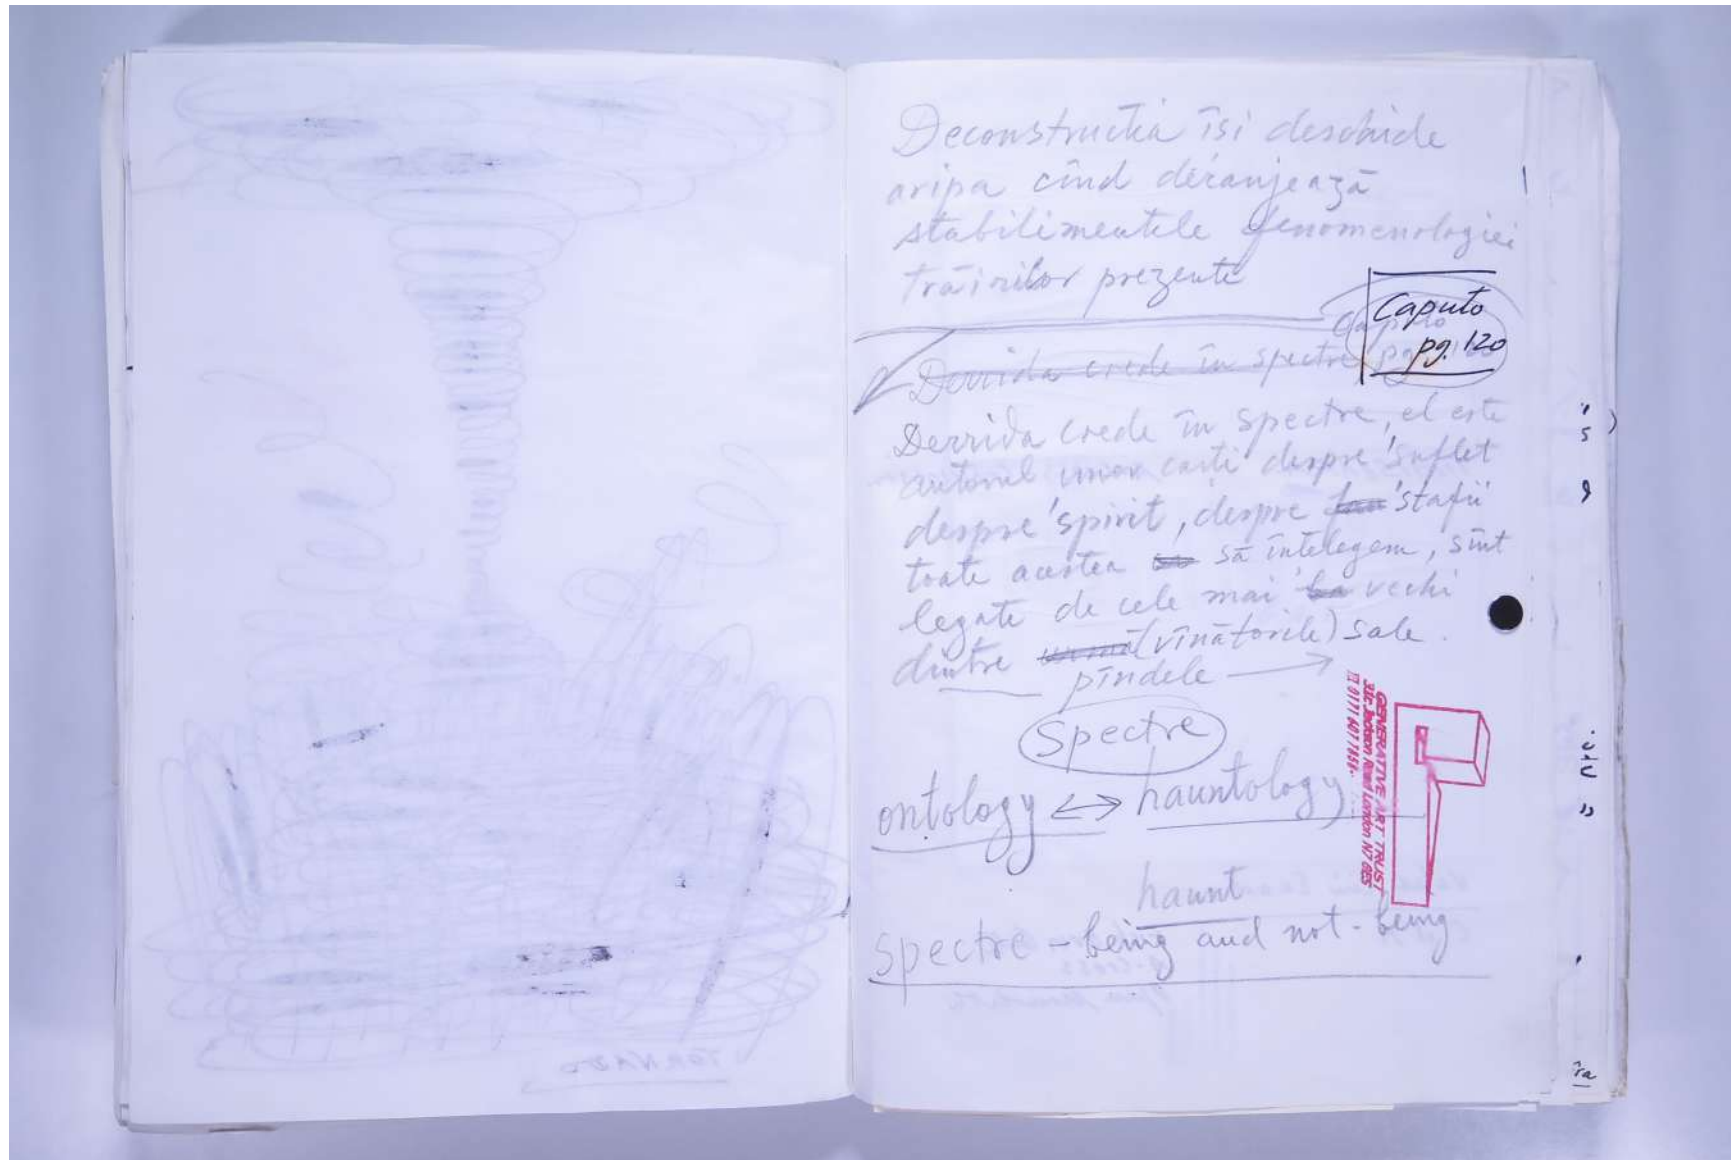 Deconstructia îsi deschide
aripa cînd deranjează
stabilimentele fenomenologiei
trăirilor prezente
Caputo
pg. 120
Derrida crede în spectre
Derrida crede în spectre, el este
autorul unor carti despre suflet
despre spirit, despre stafii
toate acestea să întelegem, sînt
legate de cele mai vechi
dintre (vînătorile) sale.
pîndele
Spectre
ontology ↔ hauntology
haunt
spectre - being and not-being
GENERATIVE ART TRUST
London N7
TORNADO